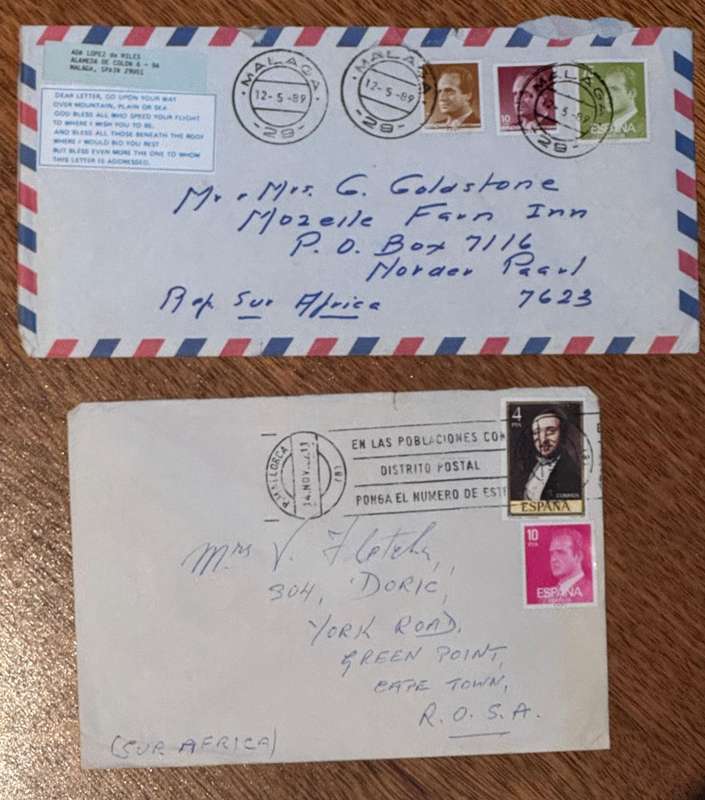 ADA LOPEZ de MILES
ALAMEDA DE COLON 6 - 9A
MALAGA, SPAIN 29001
DEAR LETTER, GO UPON YOUR WAY
OVER MOUNTAIN, PLAIN OR SEA
GOD BLESS ALL WHO SPEED YOUR FLIGHT
TO WHERE I WISH YOU TO BE.
AND BLESS ALL THOSE BENEATH THE ROOF
WHERE I WOULD BID YOU REST
BUT BLESS EVEN MORE THE ONE TO WHOM
THIS LETTER IS ADDRESSED.
MALAGA
12-5-89
-29-
MALAGA
12-5-89
-29-
10
MALAGA
5-89
29-
ESPAÑA
Mr. Mrs. G. Goldstone
Mozelle Farm Inn
P. O. Box 7116
Norder Paarl
Rep. Sur Africa 7623
P.MALLORCA
14.NOV
EN LAS POBLACIONES CON
DISTRITO POSTAL
PONGA EL NUMERO DE ESTE
4
PTA
CORREOS
ESPAÑA
10
PTA
ESPAÑA
Mrs V. Fletcher,
304, DORIC,
YORK ROAD,
GREEN POINT,
CAPE TOWN,
R.O.S.A.
(SUR AFRICA)